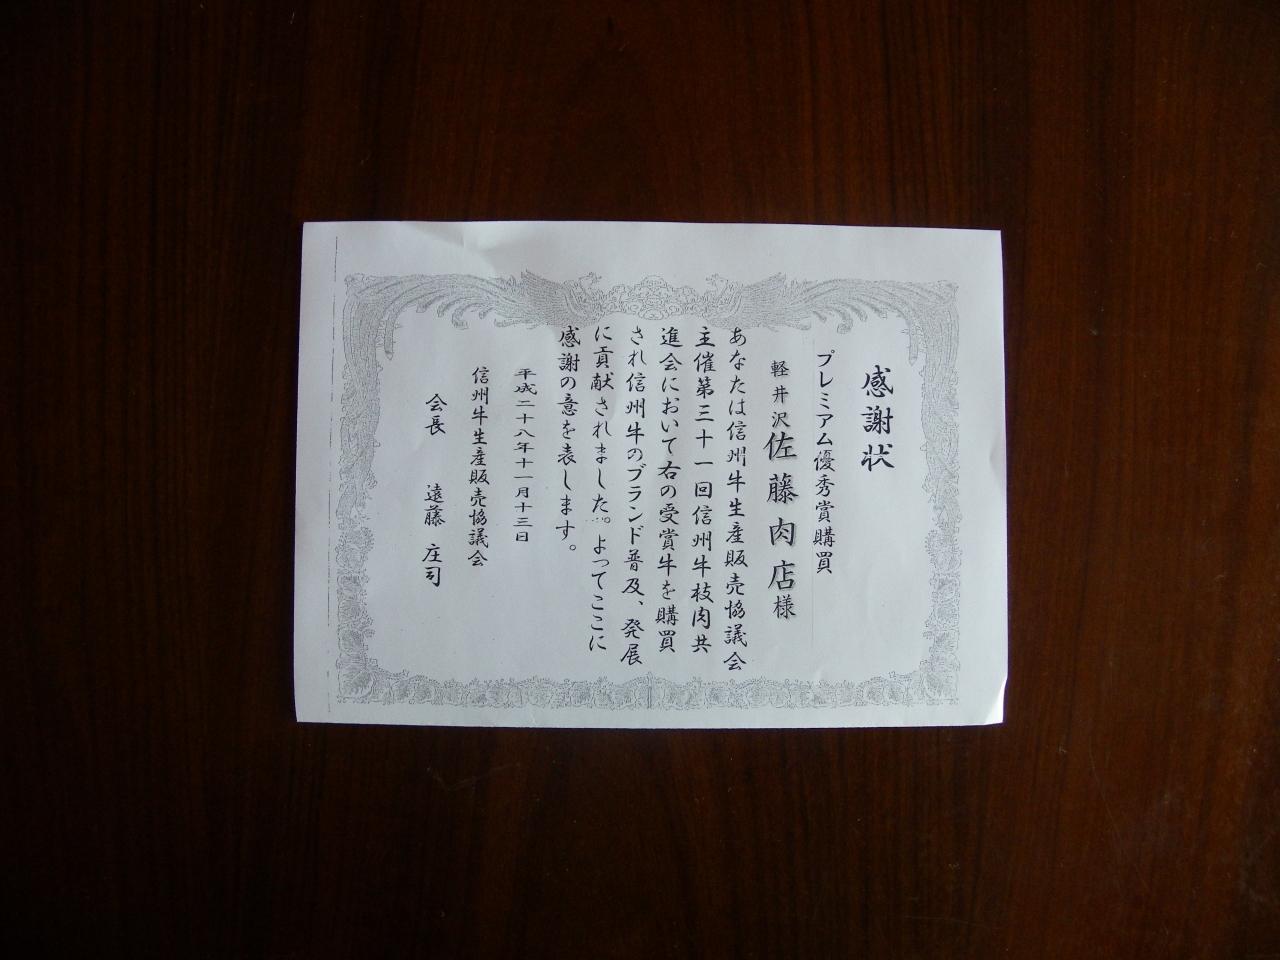 感謝状
プレミアム優秀賞購買
軽井沢佐藤肉店様
あなたは信州牛生産販売協議会
主催第三十一回信州牛枝肉共
進会において右の受賞牛を購買
され信州牛のブランド普及、発展
に貢献されました。よってここに
感謝の意を表します。
平成二十八年十一月十三日
信州牛生産販売協議会
会長 遠藤庄司